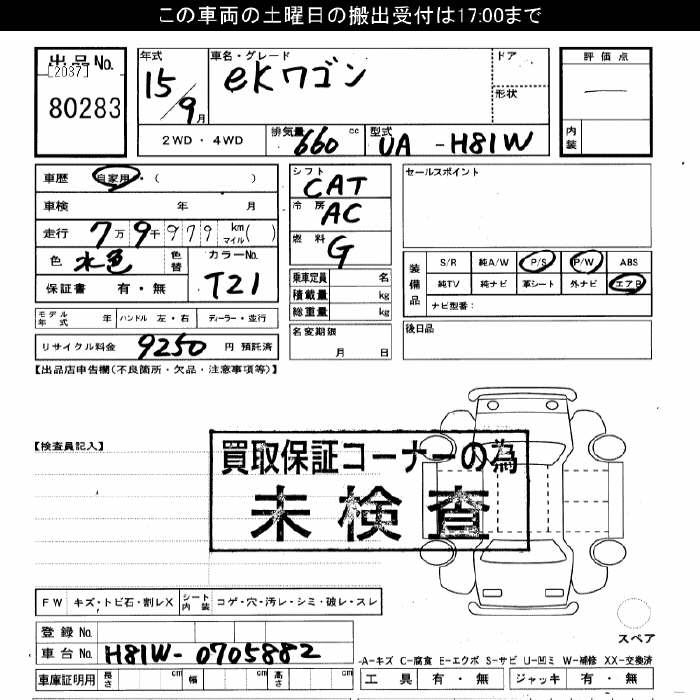 この車両の土曜日の搬出受付は17:00まで
出品No.
[2037]
80283
年式
15/9月
車名・グレード
eKワゴン
ドア
形状
評価点
内装
2WD・4WD
排気量
660 cc
型式
UA-H81W
車歴 自家用・( )
車検 年 月
走行 7万9千979 km マイル( )
色 水色 色替
カラーNo.
T21
保証書 有・無
シフト
CAT
冷房
AC
燃料
G
乗車定員 名
積載量 kg
総重量 kg
セールスポイント
装備品
S/R 純A/W P/S P/W ABS
純TV 純ナビ 革シート 外ナビ エアB
ナビ型番:
モデル年式 年 ハンドル 左・右 ディーラー・並行
名変期限
月 日
後日品
リサイクル料金 9250 円 預託済
【出品店申告欄(不良箇所・欠品・注意事項等)】
【検査員記入】
買取保証コーナーの為
未検査
FW キズ・トビ石・割レX シート内装 コゲ・穴・汚レ・シミ・破レ・スレ
スペア
登録No.
車台No. H81W-0705882
A-キズ C-腐食 E-エクボ S-サビ U-凹ミ W-補修 XX-交換済
車庫証明用 長さ cm 幅 cm 高さ cm
工具 有・無 ジャッキ 有・無